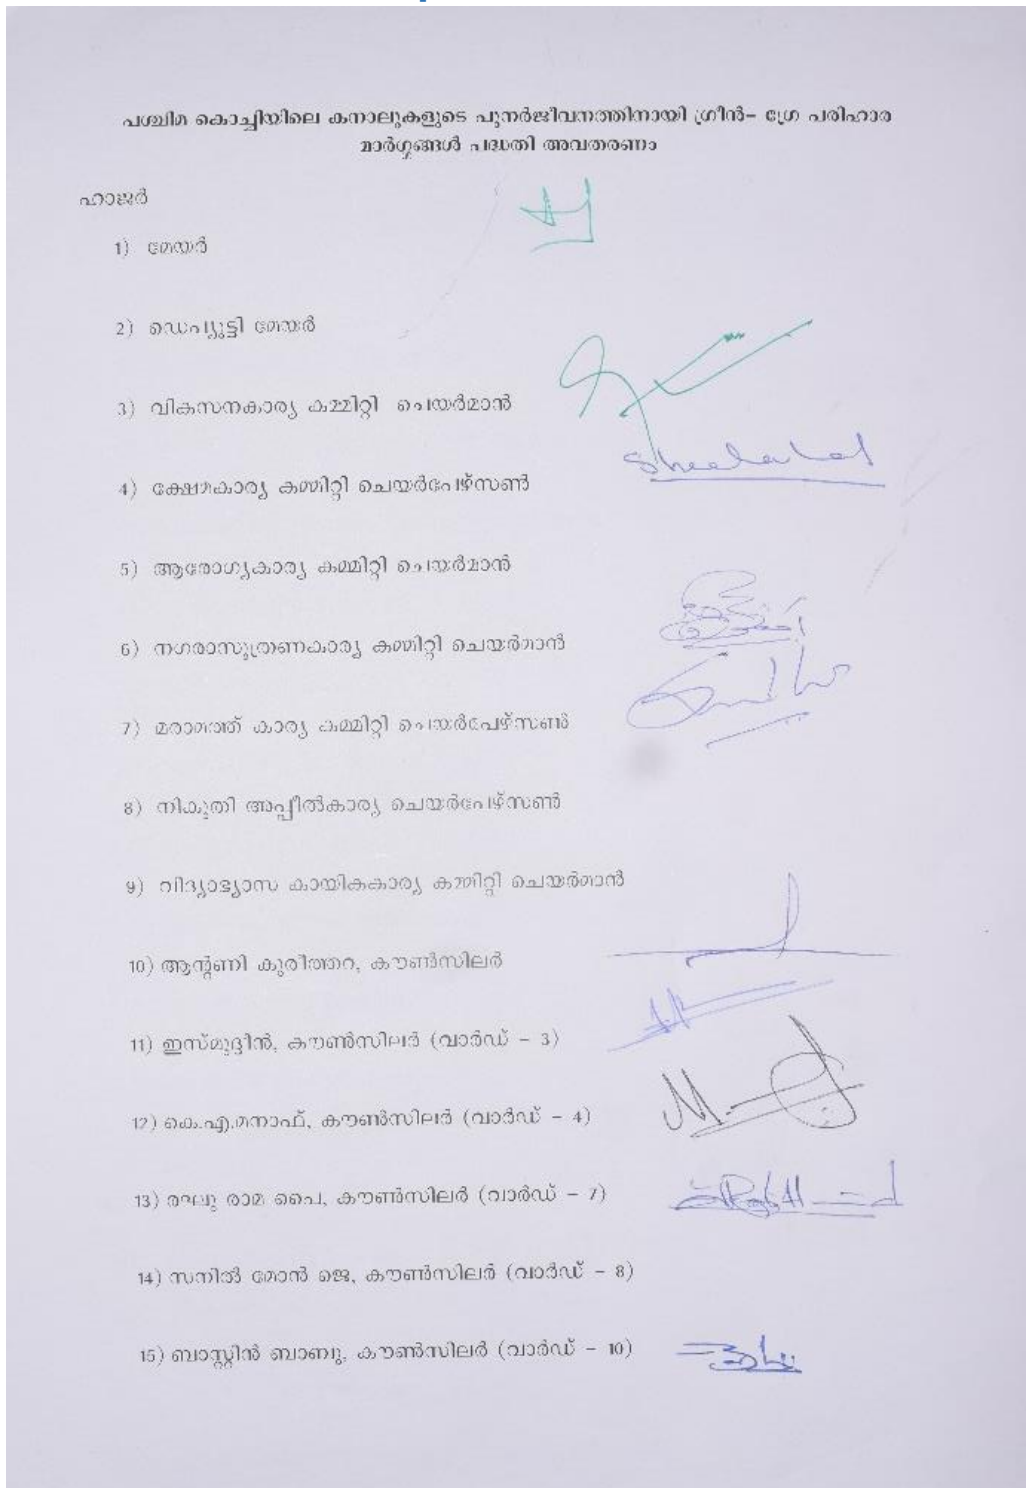 പശ്ചിമ കൊച്ചിയിലെ കനാലുകളുടെ പുനർജീവനത്തിനായി ഗ്രീൻ- ഗ്രേ പരിഹാര
മാർഗ്ഗങ്ങൾ പദ്ധതി അവതരണം
ഹാജർ
1) മേയർ
2) ഡെപ്യൂട്ടി മേയർ
3) വികസനകാര്യ കമ്മിറ്റി ചെയർമാൻ
Sheelalal
4) ക്ഷേമകാര്യ കമ്മിറ്റി ചെയർപേഴ്സൺ
5) ആരോഗ്യകാര്യ കമ്മിറ്റി ചെയർമാൻ
6) നഗരാസൂത്രണകാര്യ കമ്മിറ്റി ചെയർമാൻ
7) മരാമത്ത് കാര്യ കമ്മിറ്റി ചെയർപേഴ്സൺ
8) നികുതി അപ്പീൽകാര്യ ചെയർപേഴ്സൺ
9) വിദ്യാഭ്യാസ കായികകാര്യ കമ്മിറ്റി ചെയർമാൻ
10) ആന്റണി കുരീത്തറ, കൗൺസിലർ
11) ഇസ്മുദ്ദീൻ, കൗൺസിലർ (വാർഡ് - 3)
12) കെ.എ.മനാഫ്, കൗൺസിലർ (വാർഡ് - 4)
13) രഘു രാമ പൈ, കൗൺസിലർ (വാർഡ് - 7)
14) സനിൽ മോൻ ജെ, കൗൺസിലർ (വാർഡ് - 8)
15) ബാസ്റ്റിൻ ബാബു, കൗൺസിലർ (വാർഡ് - 10)